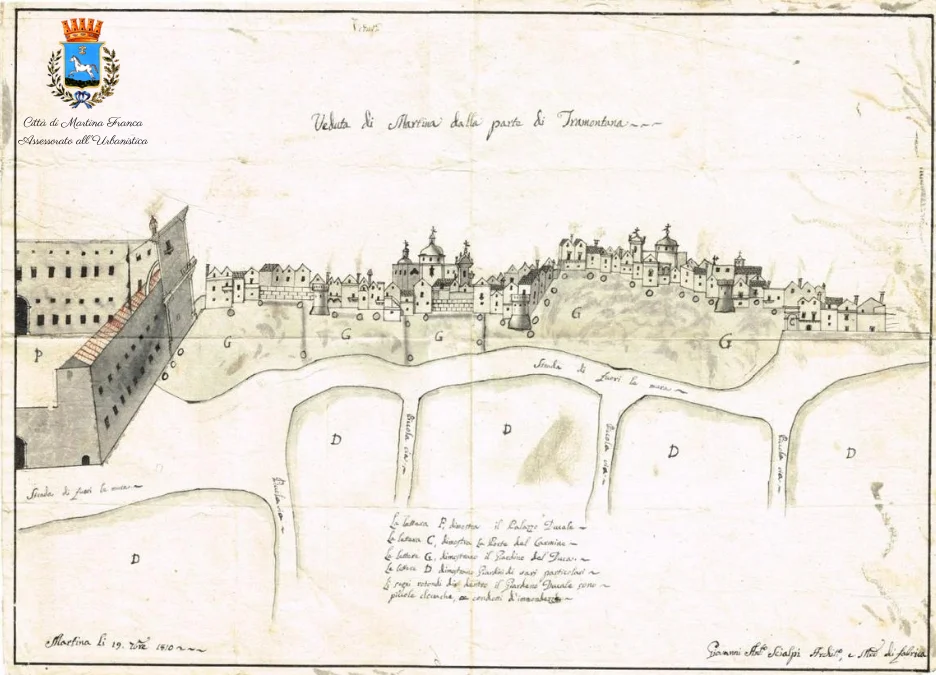 Città di Martina Franca
Assessorato all'Urbanistica
Veduta di Martina dalla parte di Tramontana
P
G
G
G
G
G
C
Strada di fuori le mura
D
D
D
D
D
Picola via
Picola via
Picola via
Picola via
Strada di fuori le mura
La lettera P, dimostra il Palazzo Ducale
La lettera C, dimostra la Porta del Carmine
La lettera G, dimostrano il Giardino del Duca
La lettera D dimostrano Giardini di varj particolari
Li segni rotondi di dentro il Giardino Ducale sono
picole cloache, o condotti d'immondezze
Martina li 19. 1810
Giovanni Ant.° Scialpi Archit.°, e di fabrica